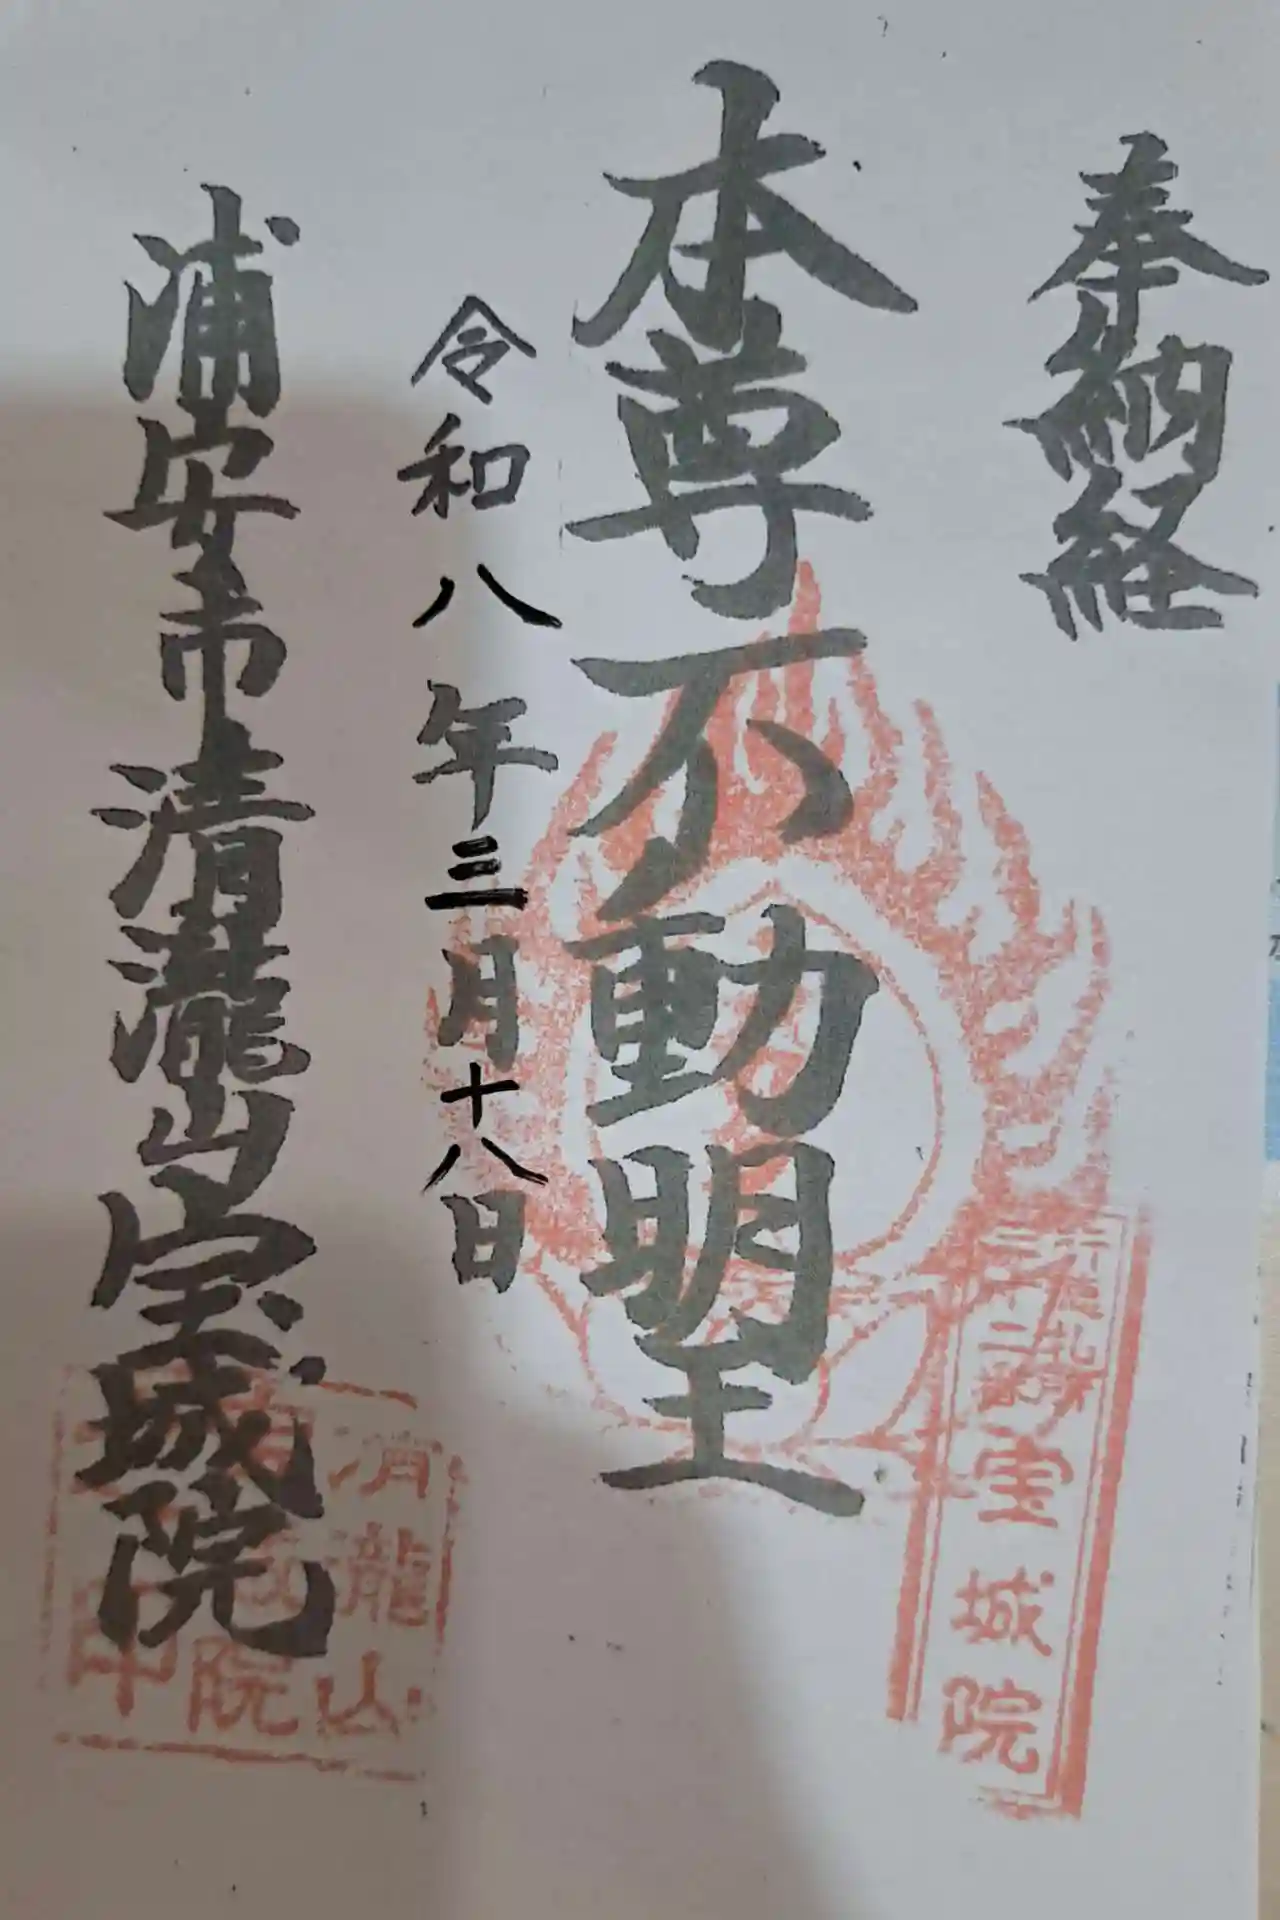 奉納経
本尊不動明王
令和八年三月十八日
浦安市清瀧山宝城院
宝城院
清瀧山
院
印